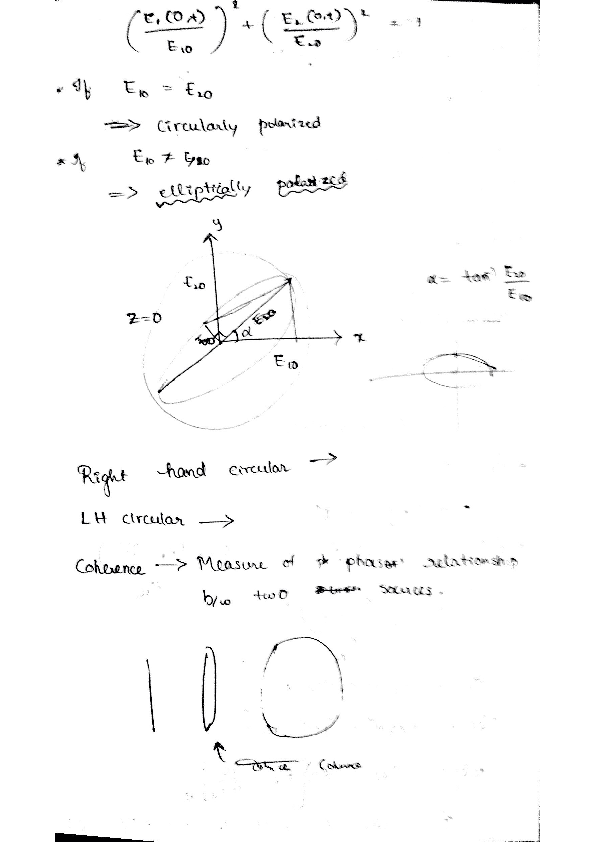 (E₁(0,t)/E₁₀)² + (E₂(0,t)/E₂₀)² = 1
* If E₁₀ = E₂₀
=> Circularly polarized
* If E₁₀ ≠ E₂₀
=> elliptically polarized
y
E₂₀
α = tan⁻¹ E₂₀/E₁₀
Z=0
α
x
E₁₀
Right hand circular →
LH circular →
Coherence → Measure of phaser relationship
b/w two sources.